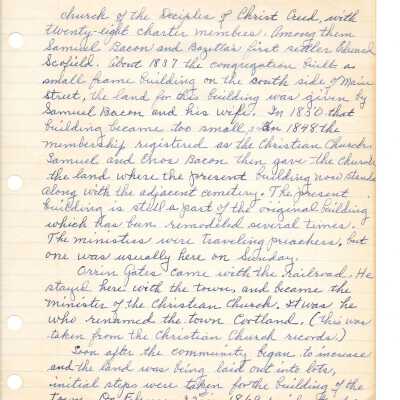 church of the Deciples of Christ Creed, with
twenty-eight charter members. Among them
Samuel Bacon and Bazetta's first settler Edward
Scofield. About 1837 the congregation built a
small frame building on the South side of Main
Street, the land for this building was given by
Samuel Bacon and his wife. In 1850 that
building became too small. In 1848 the
membership registered as the Christian Church.
Samuel and Enos Bacon then gave the Church
the land where the present building now stands
along with the adjacent cemetery. The present
building is still a part of the original building
which has been remodeled several times.
The ministers were traveling preachers, but
one was usually here on Sunday.
Orrin Gates came with the railroad. He
stayed here with the town, and became the
minister of the Christian Church. It was he
who renamed the town Cortland. (this was
taken from the Christian Church records.)
Soon after the community began to increase
and the land was being laid out into lots,
initial steps were taken for the building of the